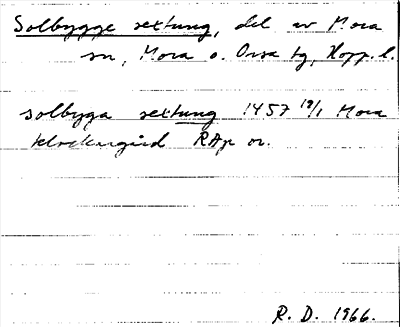 Solbygge settung, del av Mora
sn, Mora o. Orsa tg, Kopp. l.
solbyga settung 1457 19/1 Mora
klockergård RAp or.
R. D. 1966.